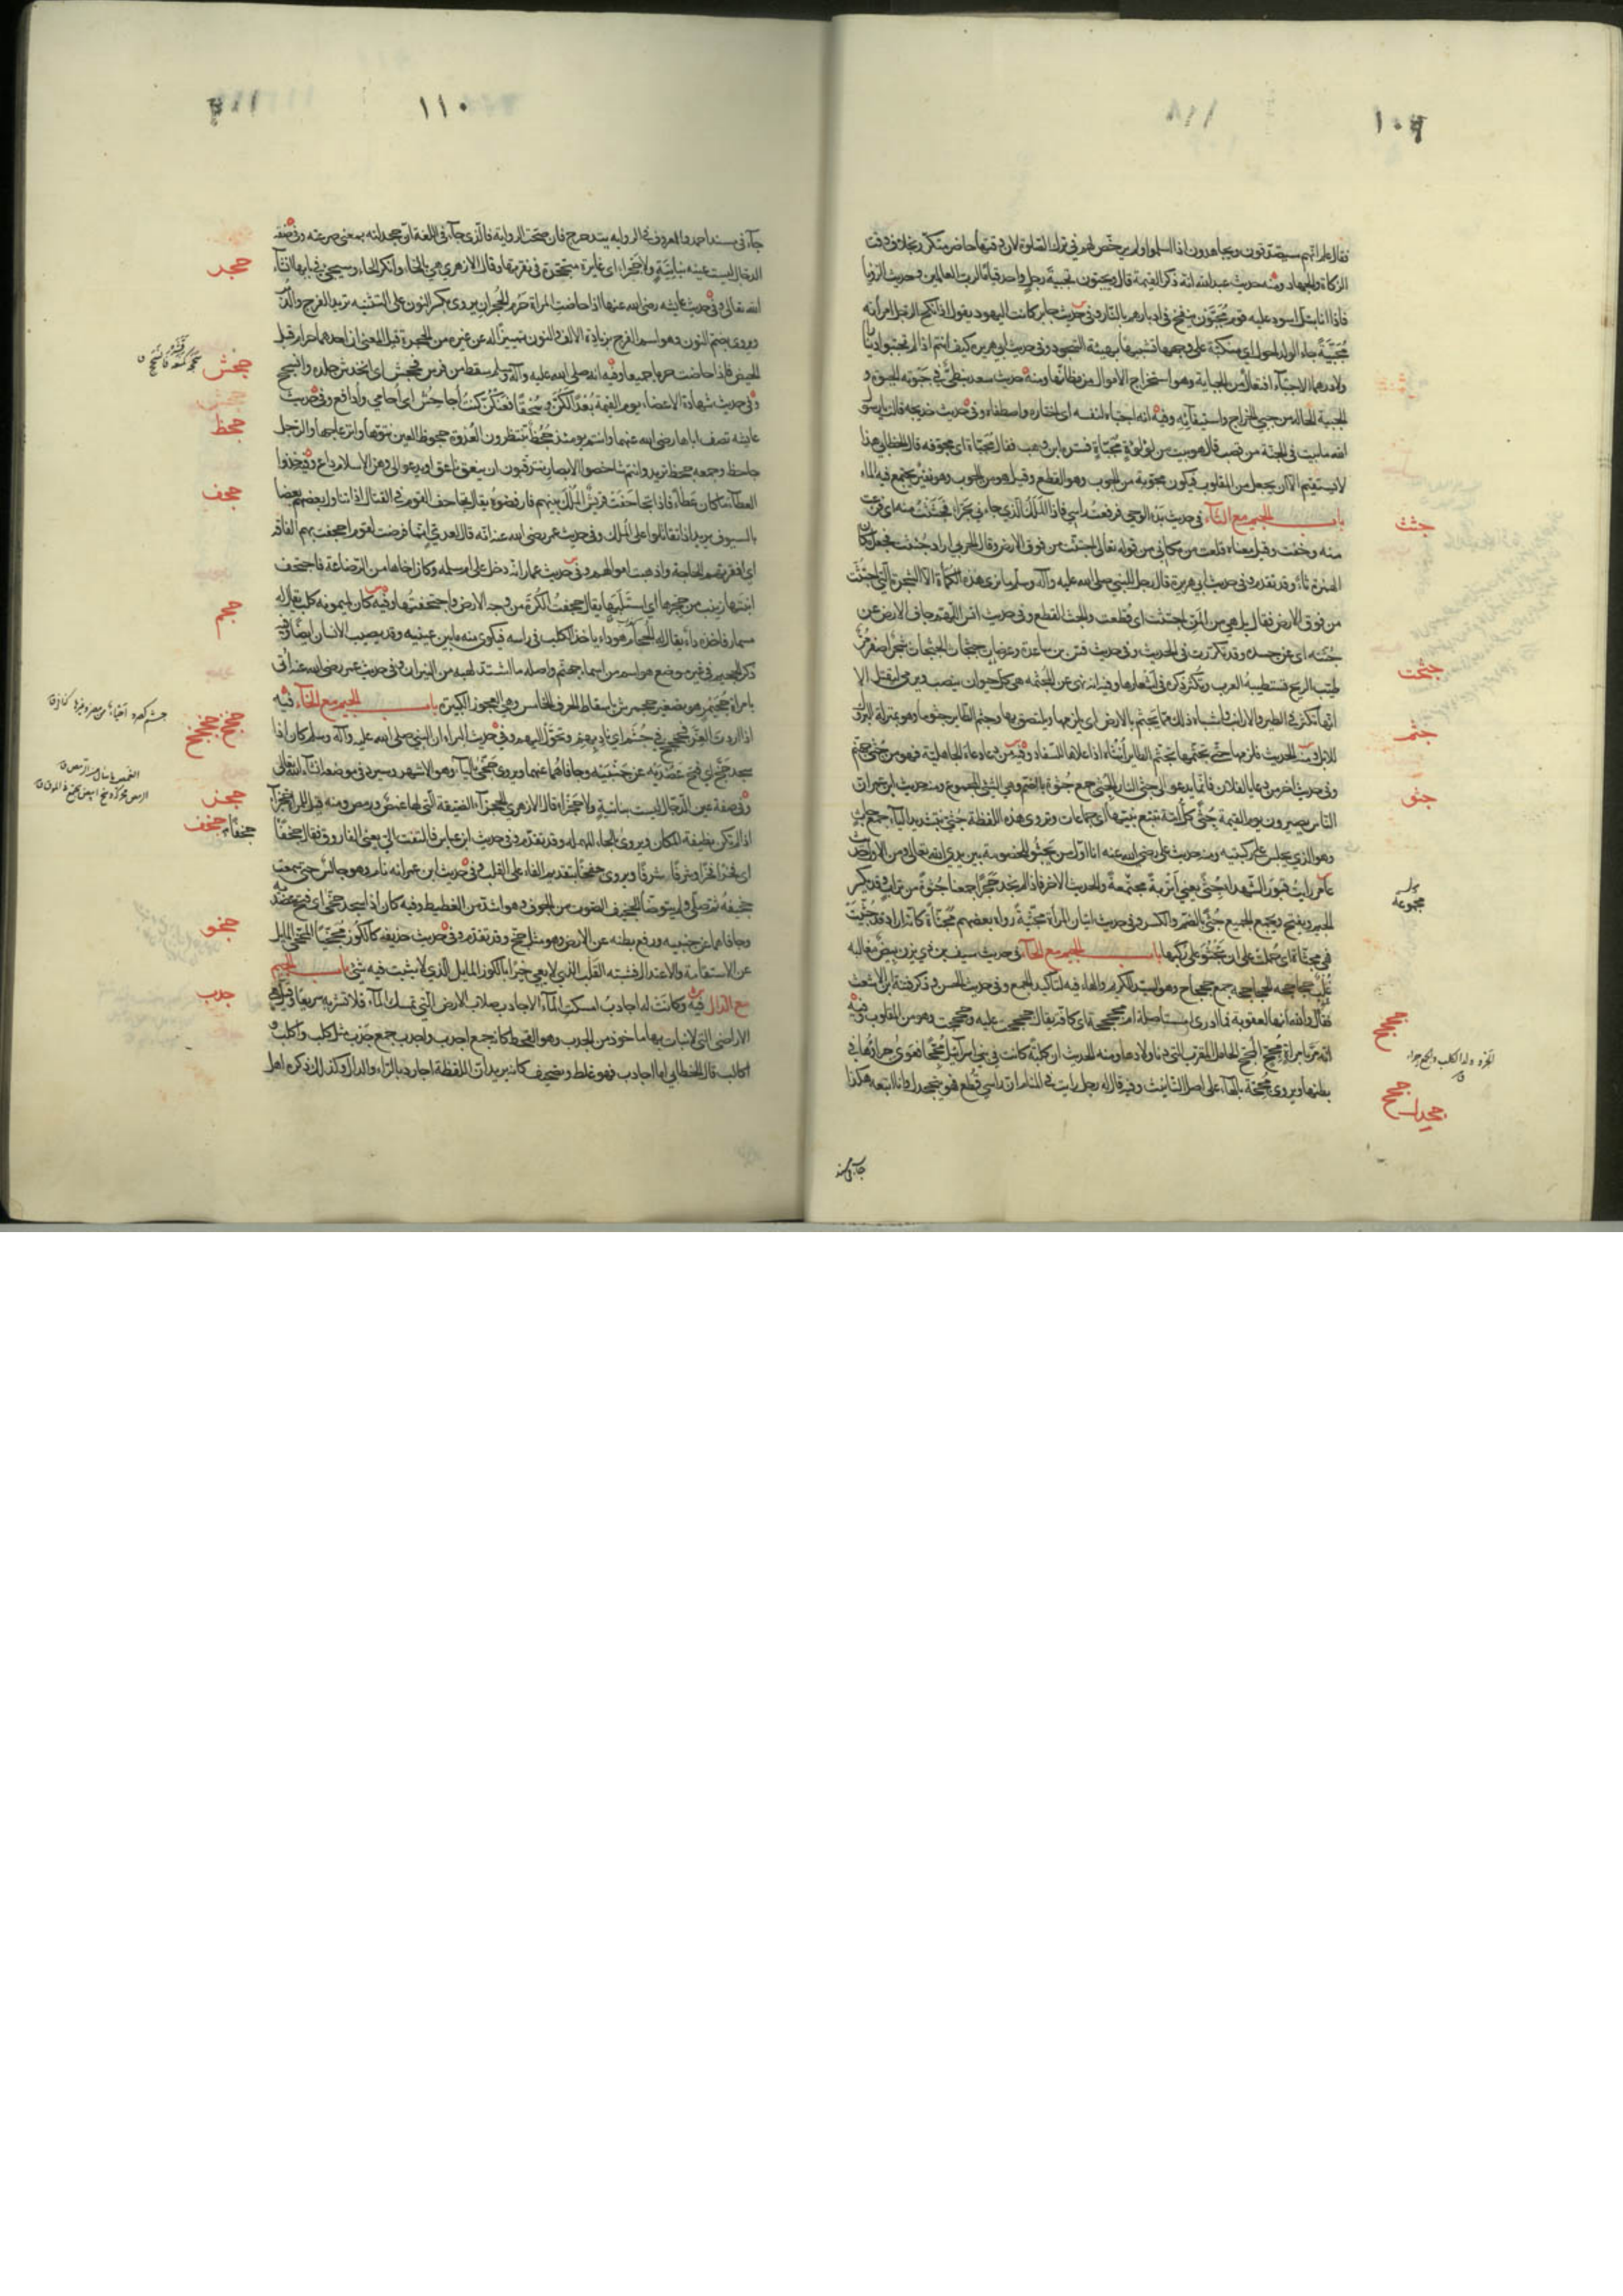 ١٠٩
فقال علم انهم سيتصدقون ويجاهدون اذا اسلموا ولم يرخص لهم في ترك الصلوة لان وقتها حاضر متكرر بخلاف وقت
الزكاة والجهاد ومنه حديث عبد الله انه ذكر القيمة قال ويجبون تجبية رجل واحد قياما لرب العالمين وحديث الرؤيا
فاذا انا بتل اسود عليه قوم مجبون ينفخ في ادبارهم بالنار وفي حديث جابر كانت اليهود يقول اذا نكح الرجل امرأته
مجبية جاء الولد احول اي منكبة على وجهها تشبيها بهيئة السجود وفي حديث ابي هريرة كيف انتم اذا لم تجتبوا دينارا
ولا درهما الاجتباء افتعال من الجباية وهو استخراج الاموال من مظانها ومنه حديث سعد نبطي في جبوته الجبوة و
الجبية الحالة من جبي الخراج واستيفائه وفيه انه اجتباه لنفسه اي اختاره واصطفاه وفي حديث خديجة قالت يا رسول
الله ما بيت في الجنة من قصب قال هو بيت من لؤلؤة مجباة فسره ابن وهب فقال مجباة اي مجوفة قال الخطابي هذا
لا يستقيم الا ان يجعل من المقلوب فيكون مجوبة من الجوب وهو القطع وقيل هو من الجوب وهو نقير يجتمع فيه الماء
باب الجيم مع الثاء في حديث بدء الوحي فرفعت راسي فاذا الملك الذي جاءني بحراء فجثثت منه اي فزعت
منه وخفت وقيل معناه قلعت من مكاني من قوله تعالى اجتثت من فوق الارض وقال الحربي اراد جئثت فجعل مكان
الهمزة ثاء وقد تقدم وفي حديث ابي هريرة قال رجل للنبي صلى الله عليه وآله وسلم ما نرى هذه الكمأة الا الشجرة التي اجتثت
من فوق الارض فقال بل هي من المن اجتثت اي قطعت والجث القطع وفي حديث انس اللهم جاف الارض عن
جثته اي عن جسده وقد تكررت في الحديث وفي حديث قس بن ساعدة وعرصات جثجاث الجثجاث شجر اصفر مر
طيب الريح تستطيبه العرب وتكثر ذكره في اشعارها وفيه انه نهى عن المجثمة هي كل حيوان ينصب ويرمى ليقتل الا
انها تكثر في الطير والارانب واشباه ذلك مما يجثم بالارض اي يلزمها ويلتصق بها وجثم الطائر جثوما وهو بمنزلة البروك
للابل ومنه الحديث فلزمها حتى تجثمها تجثم الطائر انثاه اذا علاها للسفاد وفيه من دعا دعاء الجاهلية فهو من جثى جهنم
وفي حديث اخر من دعا يا لفلان فانما يدعو الى جثى النار الجثى جمع جثوة بالضم وهي الشئ المجموع ومنه حديث ابن عمر ان
الناس يصيرون يوم القيمة جثى كل امة تتبع نبيها اي جماعات وتروى هذه اللفظة جثي بتشديد الياء جمع جاث
وهو الذي يجلس على ركبتيه ومنه حديث علي رضي الله عنه انا اول من يجثو للخصومة بين يدي الله تعالى ومن الاول حديث
عامر رايت قبور الشهداء جثى يعني اتربة مجتمعة والحديث الاخر فاذا لم نجد حجرا جمعنا جثوة من تراب وقد يكسر
الجيم ويفتح ويجمع الجميع جثى بالضم والكسر وفي حديث اتيان المرأة مجبية رواه بعضهم مجثاة كانه اراد قد جثيت
فهي مجثاة اي حملت على ان تجثو على ركبتيها باب الجيم مع الحاء في حديث سيف بن ذي يزن بيض مغالبه
غلب جحاجحه الجحاجحة جمع جحجاح وهو السيد الكريم والهاء فيه لتاكيد الجمع وفي حديث الحسن وذكر فتنة ابن الاشعث
فقال والله انها لعقوبة فما ادري مستاصلة ام مجحجحة اي كافة يقال جحجحت عليه وحجحجت وهو من المقلوب وفيه
انه مر بامراة مجح المجح الحامل المقرب التي دنا ولادها ومنه الحديث ان كلبة كانت في بني اسرائيل مجحا فعوى جراؤها في
بطنها ويروى مجحة بالهاء على اصل التانيث وفيه قال له رجل رايت في المنام ان راسي قطع فهو يتجحدل وانا اتبعه هكذا
جثث
جثجث
جثم
جثو
مجموعة
جحجح
جحح
جحدل
جاء في مسند
١١٠
جاء في مسند احمد والمعروف في الرواية يتدحرج فان صحت الرواية فالذي جاء في اللغة ان جحدلته بمعنى صرعته وفي صفة
الدجال ليست عينه بناتئة ولا جحراء اي غائرة منجحرة في نقرتها وقال الازهري هي بالخاء وانكر الحاء وسيجئ في بابها ان شاء
الله تعالى وفي حديث عائشة رضي الله عنها اذا حاضت المراة حرم الجحران يروى بكسر النون على التثنية تريد الفرج والدبر
ويروى بضم النون وهو اسم الفرج بزيادة الالف والنون تمييزا له عن غيره من الجحرة وقيل المعنى ان احدهما حرام قبل
الحيض فاذا حاضت حرما جميعا وفيه انه صلى الله عليه وآله وسلم سقط من فرس فجحش اي انخدش جلده وانسحج
وفي حديث شهادة الاعضاء يوم القيمة بعدا لكن وسحقا فعنكن كنت اجاحش اي احامي وادافع وفي حديث
عايشة تصف اباها رضي الله عنهما وانتم يومئذ جحظ تنتظرون العدوة جحوظ العين نتوها وانزعاجها والرجل
جاحظ وجمعه جحظ تريد وانتم شاخصوا الابصار تترقبون ان ينعق ناعق او يدعو الى وهن الاسلام داع وفيه خذوا
العطاء ما كان عطاء فاذا تجاحفت قريش الملك بينهم فارفضوه يقال تجاحف القوم في القتال اذا تناول بعضهم بعضا
بالسيوف يريد اذا تقاتلوا على الملك وفي حديث عمر رضي الله عنه انه قال لعدي انما فرضت لقوم اجحفت بهم الفاقة
اي افقرتهم الحاجة واذهبت اموالهم وفي حديث عمار انه دخل على ام سلمة وكان اخاها من الرضاعة فاجتحف
ابنتها زينب من حجرها اي استلبها يقال جحفت الكرة من وجه الارض واجتحفتها وفيه كان لميمونة كلب يقال له
مسمار فاخذه داء يقال له الجحام هو داء ياخذ الكلب في راسه فيكوى منه ما بين عينيه وقد يصيب الانسان ايضا وفيه
ذكر الجحيم في غير موضع هو اسم من اسماء جهنم واصله ما اشتد لهبه من النيران وفي حديث عمر رضي الله عنه اني
بامراة جحيمر هو تصغير جحمرش باسقاط الحرف الخامس وهي العجوز الكبيرة باب الجيم مع الخاء فيه
اذا اردت العز فجخجخ في جشم اي ناد بهم وتحول اليهم وفي حديث البراء ان النبي صلى الله عليه وآله وسلم كان اذا
سجد جخ اي فتح عضديه عن جنبيه وجافاهما عنهما ويروى جخى بالياء وهو الاشهر وسيرد في موضعه ان شاء الله تعالى
وفي صفة عين الدجال ليست بناتئة ولا جخراء قال الازهري الجخراء الضيقة التي لها غمص ورمص ومنه قيل للمراة جخراء
اذا لم تكن نظيفة المكان ويروى بالحاء المهملة وقد تقدم وفي حديث ابن عباس فالتفت الي يعني الفاروق فقال جخفا
اي فخرا فخرا وشرفا شرفا ويروى جفخا بتقديم الفاء على القلب وفي حديث ابن عمر انه نام وهو جالس حتى سمعت
جخيفه ثم صلى ولم يتوضا الجخيف الصوت من الجوف وهو اشد من الغطيط وفيه كان اذا سجد جخى اي فتح عضديه
وجافاهما عن جنبيه ورفع بطنه عن الارض وهو مثل جخ وقد تقدم وفي حديث حذيفة كالكوز مجخيا المجخي المايل
عن الاستقامة والاعتدال فشبه القلب الذي لا يعي خيرا بالكوز المايل الذي لا يثبت فيه شئ باب الجيم
مع الدال فيه وكانت لها اجادب امسكت الماء الاجادب صلاب الارض التي تمسك الماء فلا تشربه سريعا وقيل هي
الاراضي التي لا نبات بها ماخوذ من الجدب وهو القحط كانه جمع اجدب واجدب جمع جدب مثل كلب واكلب و
اكالب قال الخطابي اما اجادب فهو غلط وتصحيف كانه يريد ان اللفظة اجارد بالراء والدال وكذلك ذكره اهل
جحر
جحش
جحظ
جحف
جحم
جخجخ
جخر
جخف
جخفا
جخو
جدب